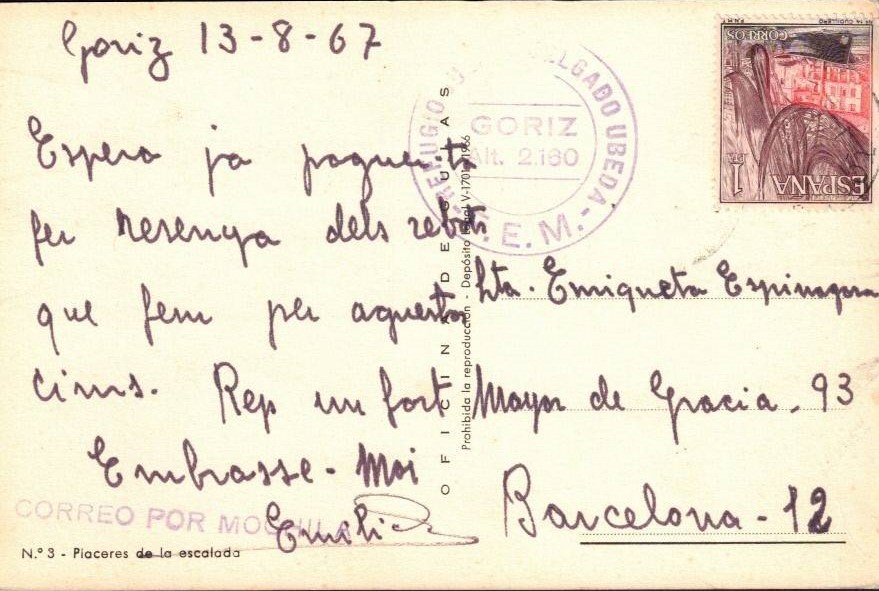 Goriz 13-8-67
Espero ja poguer-ta
fer resenya dels rebots
que fem per aquestos
cims. Rep un fort
Embrasse-Moi
Emili
CORREO POR MOCHILA
N.º 3 - Placeres de la escalada
OFICINA DE GUIAS
Prohibida la reproducción - Depósito legal V-1701-1966
REFUGIO DELGADO UBEDA
GORIZ
Alt. 2.160
F.E.M.
Nº 14 CUDILLERO
F.N.M.T
CORREOS
1 PTA
ESPAÑA
Srta. Enriqueta Espinagosa
Mayor de Gracia - 93
Barcelona - 12